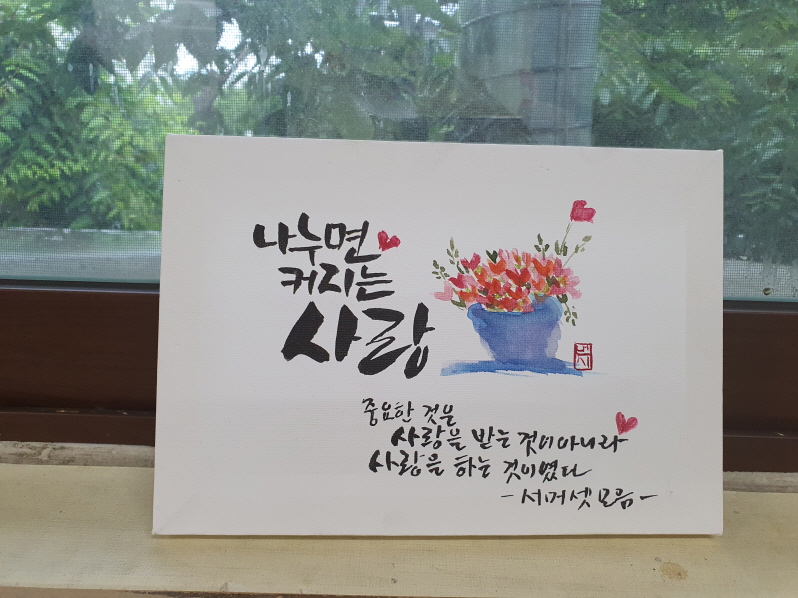 나누면
커지는
사랑
중요한 것은
사랑을 받는 것이아니라
사랑을 하는 것이였다
- 서머셋 모음 -